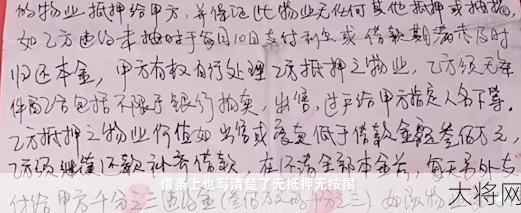 的物业抵押给甲方,并保证此物业无任何其他抵押或抽捐,
如乙方违约未按时于每月10日支付利息或借款期满未及时
归还本金,甲方有权自行处理乙方抵押之物业,乙方须无条
件配合包括不限于银行拍卖,出售,过户给甲方指定人名下等。
乙方抵押之物业价值如出售或变卖低于借款金额叁佰万元,
乙方须继续还款补齐借款 在还清全部本金前,每天另外支
付给甲方千分之三违约金(叁佰万元的千分之三)如该物
借条上也写清楚了无抵押无按揭
大将网